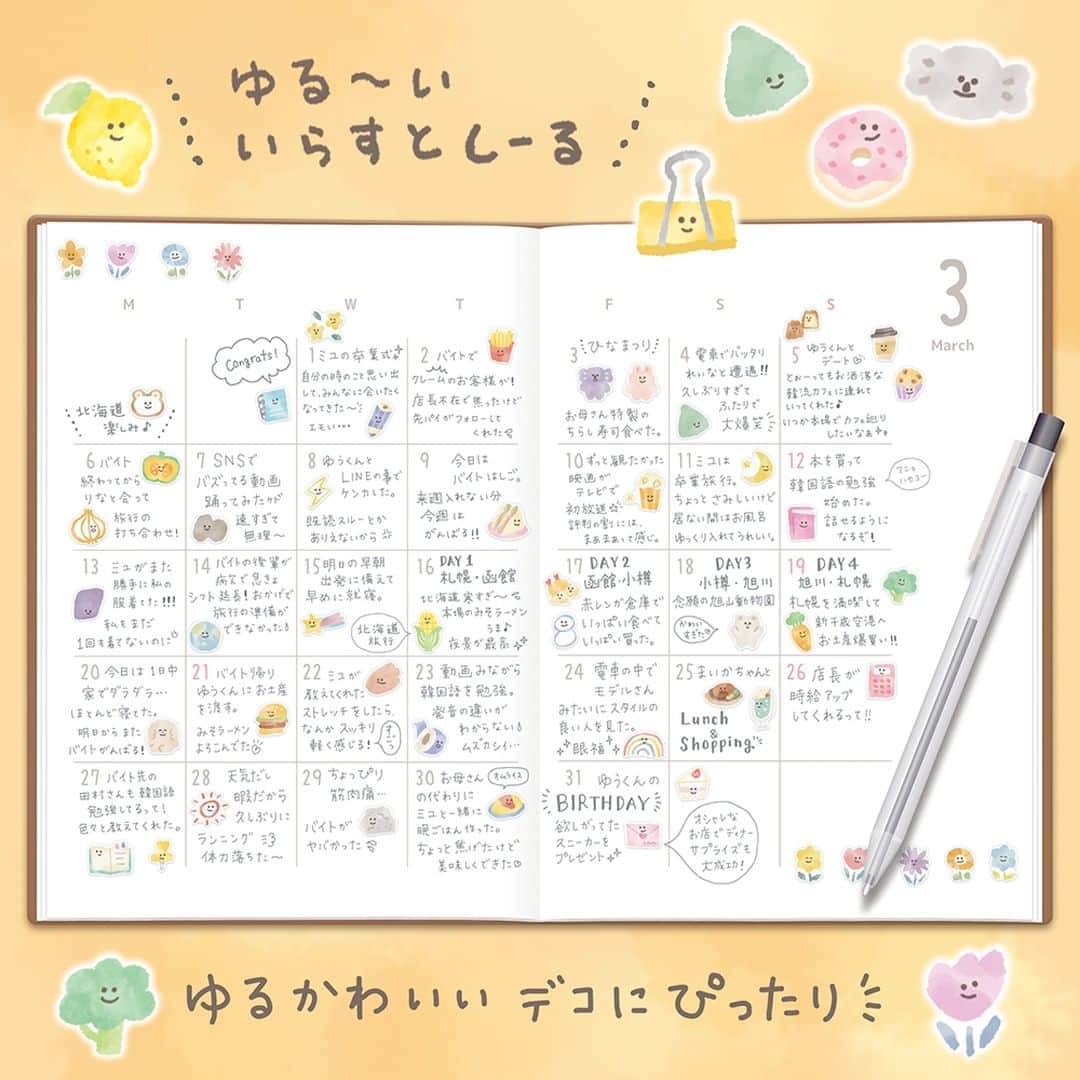 ゆる～い
いらすとしーる
3
March
M T W T F S S
Congrats!
北海道
楽しみ♪
1 ミユの卒業式♪
自分の時のこと思い出
して、みんなに会いたく
なってきた〜
エモい…
2 バイトで
クレームのお客様が!
店長不在で焦ったけど
先パイがフォローして
くれた
3 ひなまつり
お母さん特製の
ちらし寿司食べた。
4 電車でバッタリ
れいなと遭遇!!
久しぶりすぎて
ふたりで
大爆笑
5 ゆうくんと
デート♡
とぉーってもお洒落な
韓流カフェに連れて
いってくれた♪
いつか本場でカフェ巡り
したいなぁ
6 バイト
終わってから
りなと会って
旅行の
打ち合わせ!
7 SNSで
バズってる動画
踊ってみたケド
速すぎて
無理〜
8 ゆうくんと
LINEの事で
ケンカした。
既読スルーとか
ありえないから
9 今日は
バイトはしご。
来週入れない分
今週は
がんばる!!
10 ずっと観たかった
映画が
テレビで
初放送☆
評判の割には、
まぁまぁって感じ。
11 ミユは
卒業旅行。
ちょっとさみしいけど
居ない間はお風呂
ゆっくり入れてうれしい。
12 本を買って
韓国語の勉強
始めた。
話せるように
なるぞ!
アニョ
ハセヨー
13 ミユがまた
勝手に私の
服着てた!!!
私もまだ
1回も着てないのに
14 バイトの後輩が
病欠で急きょ
シフト延長!おかげで
旅行の準備が
できなかった
15 明日の早朝
出発に備えて
早めに就寝。
北海道
旅行
16 DAY1
札幌・函館
北海道寒すぎ〜
本場のみそラーメン
うま♪
夜景が最高
17 DAY2
函館・小樽
赤レンガ倉庫で
いっぱい食べて
いっぱい買った。
18 DAY3
小樽・旭川
念願の旭山動物園
かわい
すぎた♡
19 DAY4
旭川・札幌
札幌を満喫して
新千歳空港へ
お土産爆買い!!
20 今日は1日中
家でダラダラ…
ほとんど寝てた。
明日からまた
バイトがんばる!
21 バイト帰り
ゆうくんにお土産
を渡す。
みそラーメン
よろこんでた
22 ミユが
教えてくれた
ストレッチをしたら、
なんかスッキリ
軽く感じる!
23 動画みながら
韓国語を勉強。
発音の違いが
わからない
ムズカシイ…
24 電車の中で
モデルさん
みたいにスタイルの
良い人を見た。
眼福
25 まいかちゃんと
Lunch
&
Shopping
26 店長が
時給アップ
してくれるって!!
27 バイト先の
田村さんも韓国語
勉強してるって!
色々と教えてくれた。
28 天気だし
暇だから
久しぶりに
ランニング
体力落ちた〜
29 ちょっぴり
筋肉痛…
バイトが
ヤバかった
30 お母さん
の代わりに
ミユと一緒に
晩ごはん作った。
ちょっと焦げたけど
美味しくできた
オムライス
31 ゆうくんの
BIRTHDAY
欲しがってた
スニーカーを
プレゼント
オシャレな
お店でディナー
サプライズも
大成功!
ゆるかわいいデコにぴったり